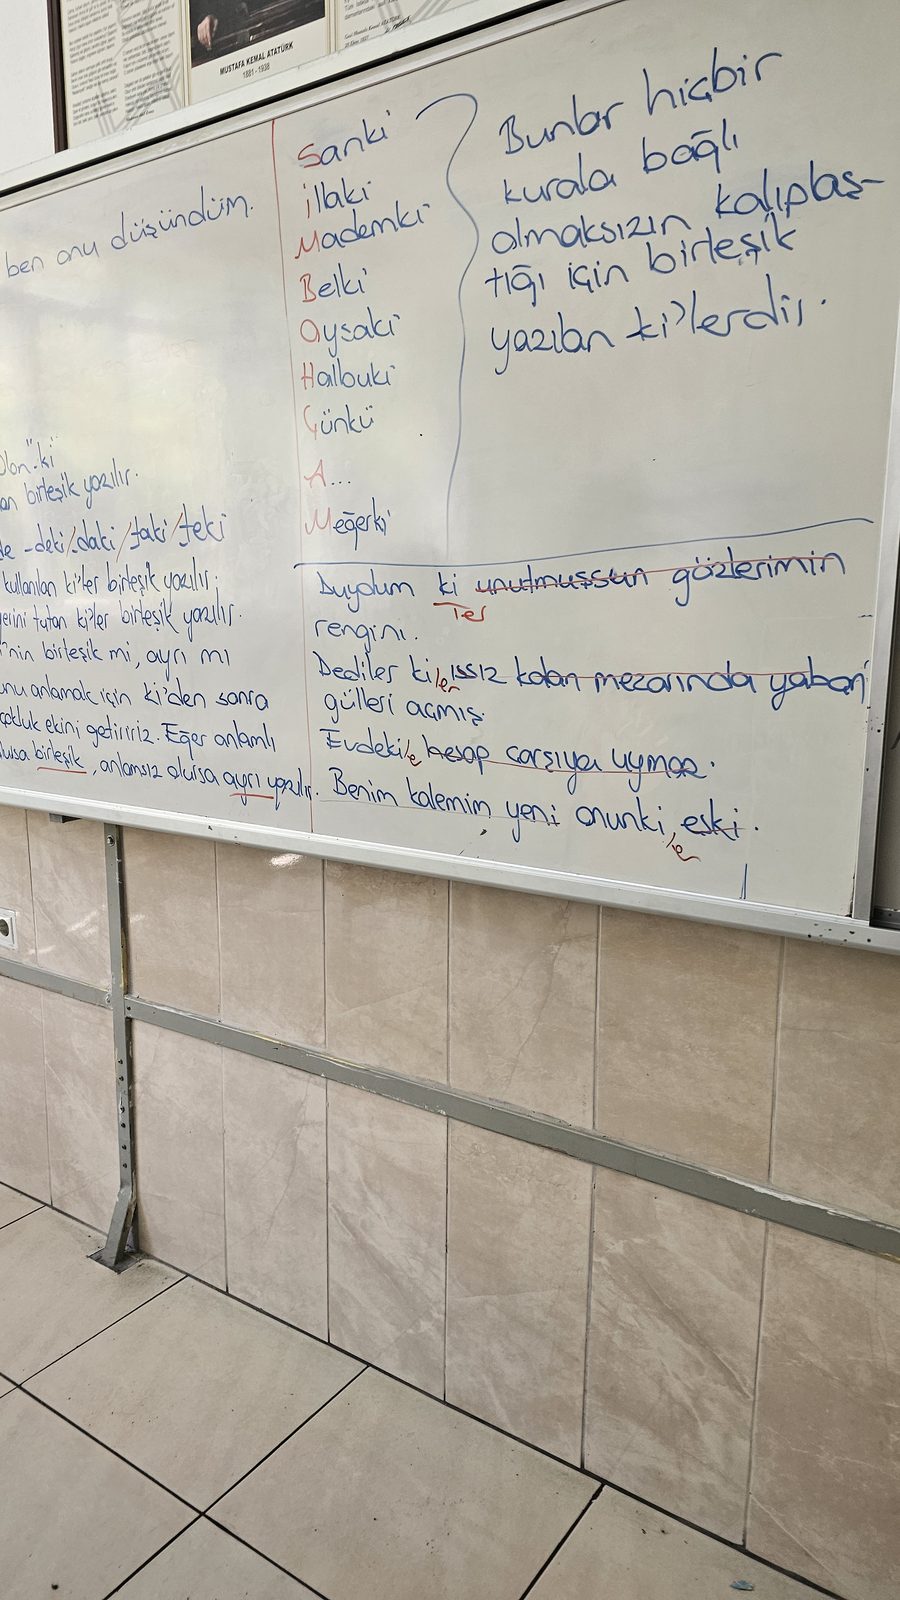 MUSTAFA KEMAL ATATÜRK
1881 - 1938
ben onu düşündüm.
birleşik yazılır.
-deki/-daki/taki/teki
kullanılan ki'ler birleşik yazılır.
yerini tutan ki'ler birleşik yazılır.
'nin birleşik mi, ayrı mı
anlamak için ki'den sonra
çokluk ekini getiririz. Eğer anlamlı
olursa birleşik, anlamsız olursa ayrı yazılır.
Sanki
İllaki
Mademki
Belki
Oysaki
Halbuki
Çünkü
A...
Meğerki
Bunlar hiçbir
kurala bağlı
olmaksızın kalıplaş-
tığı için birleşik
yazılan ki'lerdir.
Duydum ki unutmuşsun gözlerimin
ler
rengini.
Dediler ki ıssız kalan mezarında yaban
ler
gülleri açmış.
Evdeki hesap çarşıya uymaz.
Benim kalemim yeni onunki, eski.